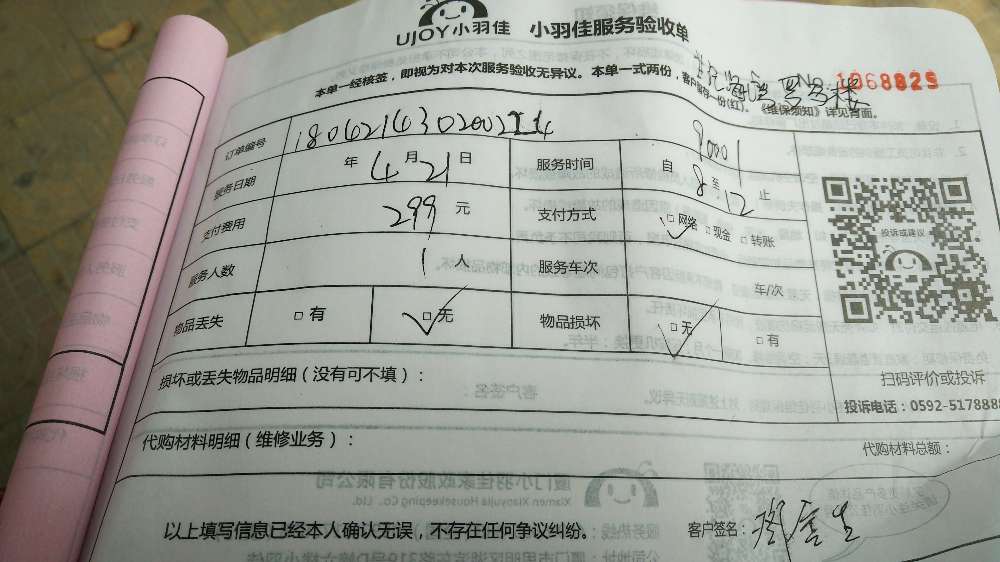 UJOY小羽佳 小羽佳服务验收单
本单一经核签，即视为对本次服务验收无异议。本单一式两份，客户留存一份(红)。《维保须知》详见背面。
No. 1068825
订单编号
服务日期 年 4 月 21 日 服务时间 自 8 至 12 止
支付费用 299 元 支付方式 □ 网络 □ 现金 □ 转账
服务人数 1 人 服务车次 车/次
物品丢失 □ 有 □ 无 物品损坏 □ 无 □ 有
投诉或建议
扫码评价或投诉
投诉电话：0592-5178888
损坏或丢失物品明细（没有可不填）：
代购材料明细（维修业务）： 代购材料总额：
以上填写信息已经本人确认无误，不存在任何争议纠纷。 客户签名：